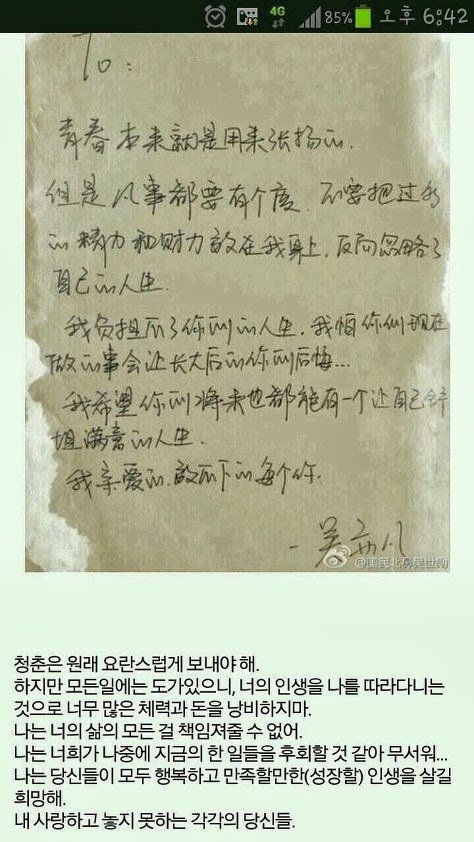 4G 85% 오후 6:42
To:
青春本来就是用来张扬的.
但是凡事都要有个度. 不要把过多
的精力和财力放在我身上, 反而忽略了
自己的人生.
我负担不了你们的人生. 我怕你们现在
做的事会让长大后的你们后悔...
我希望你们将来也都能有一个让自己
满意的人生.
我亲爱的. 放不下的每个你.
- 吴亦凡
청춘은 원래 요란스럽게 보내야 해.
하지만 모든일에는 도가있으니, 너의 인생을 나를 따라다니는
것으로 너무 많은 체력과 돈을 낭비하지마.
나는 너의 삶의 모든 걸 책임져줄 수 없어.
나는 너희가 나중에 지금의 한 일들을 후회할 것 같아 무서워...
나는 당신들이 모두 행복하고 만족할만한(성장할) 인생을 살길
희망해.
내 사랑하고 놓지 못하는 각각의 당신들.